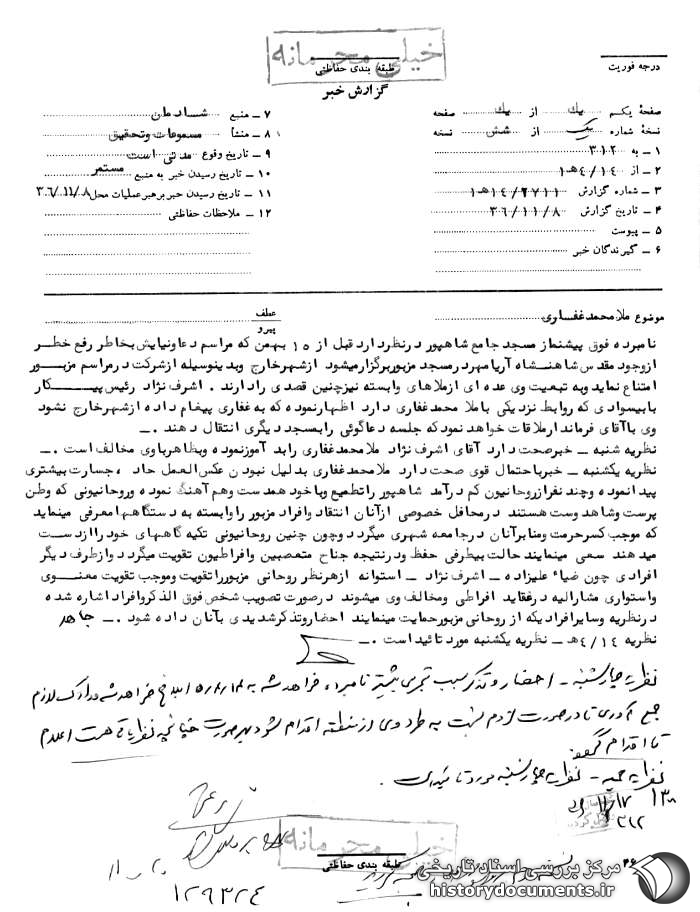 خیلی محرمانه
طبقه بندی حفاظتی
گزارش خبر
درجه فوریت
صفحهٔ یکم یك از یك صفحه
نسخهٔ شماره یک از شش نسخه
۱ ــ به ۳۱۲
۲ ــ از ۴/۱۴هـ۱
۳ ــ شماره گزارش ۱۴/۶۷۱۱هـ۱
۴ ــ تاریخ گزارش ۳۶/۱۱/۸
۵ ــ پیوست
۶ ــ گیرندگان خبر
۷ ــ منبع شادمان
۸ ــ منشأ مسموعات وتحقیق
۹ ــ تاریخ وقوع مدتی است
۱۰ ــ تاریخ رسیدن خبر به منبع مستمر
۱۱ ــ تاریخ رسیدن خبر برهبرعملیات محل ۳۶/۱۱/۸
۱۲ ــ ملاحظات حفاظتی
موضوع ملامحمدغفاری
عطف
پیرو
نامبرده فوق پیشنماز مسجد جامع شاهپور درنظردارد قبل از ۱۵ بهمن که مراسم دعاونیایش بخاطر رفع خطر
ازوجود مقدس شاهنشاه آریامهردرمسجد مزبوربرگزارمیشود ازشهرخارج وبدینوسیله ازشرکت درمراسم مزبور
امتناع نماید وبه تبعیت وی عده ای ازملاهای وابسته نیزچنین قصدی رادارند . اشرف نژاد رئیس پیکار
بابیسوادی که روابط نزدیکی باملا محمدغفاری دارد اظهارنموده که به غفاری پیغام داده ازشهرخارج نشود
وی باآقای فرماندارملاقات خواهد نمودکه جلسه دعاگوئی رابمسجد دیگری انتقال دهند .ــ
نظریه شنبه ــ خبرصحت دارد آقای اشرف نژاد ملامحمدغفاری رابد آموزنموده وبظاهرباوی مخالف است .ــ
نظریه یکشنبه ــ خبرباحتمال قوی صحت دارد ملامحمدغفاری بدلیل نبودن عکس العمل حاد ، جسارت بیشتری
پیدانموده وچند نفرازروحانیون کم درآمد شاهپور راتطمیع وباخود همدست وهم آهنگ نموده وروحانیونی که وطن
پرست وشاهدوست هستند درمحافل خصوصی ازآنان انتقاد وافراد مزبور راوابسته به دستگاهها معرفی مینماید
که موجب کسرحرمت ومنابرآنان درجامعه شهری میگردد وچون چنین روحانیونی تکیه گاههای خود راازدست
میدهند سعی مینمایند حالت بیطرفی حفظ ودرنتیجه جناح متعصبین وافراطیون تقویت میگردد وازطرف دیگر
افرادی چون ضیاء علیزاده ــ اشرف نژاد ــ استوانه ازهرنظر روحانی مزبورراتقویت وموجب تقویت معنوی
واستواری مشارالیه درعقاید افراطی ومخالف وی میشوند درصورت تصویب شخص فوق الذکروافراد اشاره شده
درنظریه وسایرافرادیکه از روحانی مزبورحمایت مینمایند احضاروتذکرشدیدی بآنان داده شود .ــ جاهد
نظریه ۴/۱۴هـ ــ نظریه یکشنبه مورد تائید است .ــ
نظریه چهارشنبه - احضار و تذکر سبب تجری بیشتر نامبرده خواهد شد به ابلاغ خواهد شد مدارک لازم
جمع آوری تا در صورت لزوم نسبت به طرد وی از منطقه اقدام شود
تا اقدام گردد
نظریه جمعه - نظریه چهارشنبه مورد تائید است .
۳۱۲
خیلی محرمانه
طبقه بندی حفاظتی
۱۲۹۳۲۴
مرکز بررسی اسناد تاریخی
historydocuments.ir